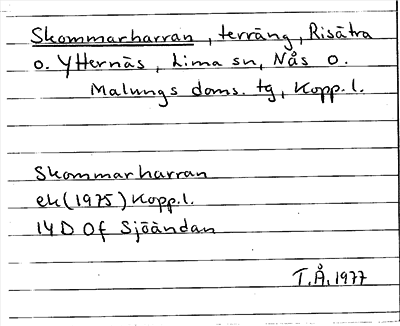 Skommarharran, terräng, Risätra
o. Ytternäs, Lima sn, Nås o.
Malungs doms. tg, Kopp. l.
Skommarharran
ek (1975) Kopp. l.
14D 0f Sjöändan
T.Å. 1977